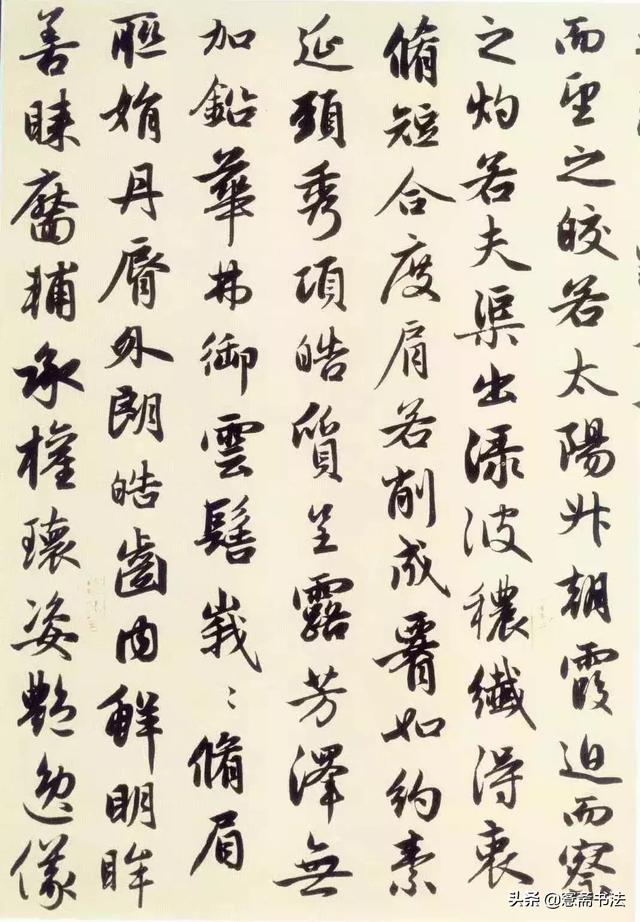 而望之皎若太陽升朝霞迫而察
之灼若夫渠出渌波穠纖得衷
脩短合度肩若削成腰如約素
延頸秀項皓質呈露芳澤無
加鉛華弗御雲髻峩〻脩眉
聮娟丹脣外朗皓齒内鮮明眸
善睞靨輔承權瓌姿艷逸儀
头条 @愙斋书法